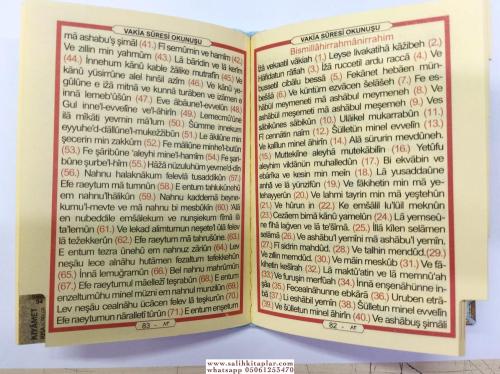 VAKİA SÛRESİ OKUNUŞU
Bismillâhirrahmânirrahim
İżâ vekaatil vâkiah (1.) Leyse livakatihâ kâżibeh (2.)
Hâfidatun râfiah (3.) İżâ ruccetil ardu raccâ (4.) Ve
bussetil cibâlu bessâ (5.) Fekânet hebâen mün-
bessâ (6.) Ve küntüm ezvâcen śelâśeh (7.) Fe es-
hâbül meymeneti mâ ashâbül meymeneh (8.) Ve
ashâbül meşemeti mâ ashâbül meşemeh (9.) Ves
sâbikûnes sâbikûn (10.) Ulâikel mukarrabûn (11.)
Fî cennâtin naîm (12.) Śülletün minel evvelîn (13.)
Ve kalîlun minel âhirîn (14.) Alâ sürurin mevdûneh.
(15.) Muttekiîne aleyhâ mutekâbilîn (16.) Yetûfu
aleyhim vildânün muhalledûn (17.) Bi ekvâbin ve
ebârîka ve kesin min meîn (18.) Lâ yusaddaûne
anhâ ve lâ yünzifûn (19.) Ve fâkihetin min mâ ye-
tehayyerûn (20.) Ve lahmi tayrin min mâ yeştehûn
(21.) Ve hûrun în (22.) Ke emśâlil lu'lüil meknûn
(23.) Cezâem bimâ kânû yamelûn (24.) Lâ yemseû-
ne fîhâ lağven ve lâ teśîmâ. (25.) İllâ kîlen selâmen
selâmâ (26.) Ve ashâbül yemîni mâ ashâbul yemîn.
(27.) Fî sidrin mahdûd. (28.) Ve talhin mendûd. (29.)
Ve zıllin memdûd. (30.) Ve mâin meskûb (31.) Ve fâ-
kihetin keśîrah (32.) Lâ maktû'atin ve lâ memnû'ah
(33.) Ve furuşin merfûah (34.) İnnâ enşenâhünne in-
şââ (35.) Feceâlnahunne ebkârâ (36.) Uruben etrâ-
bâ (37.) Li eshâbil yemîn (38.) Śülletun minel evvelîn
(39.) Ve śülletun minel âhirîn (40.) Ve ashâbuş şimâli
82 - ٨٢
VAKİA SÛRESİ OKUNUŞU
mâ ashabu'ş şimâl (41.) Fî semûmin ve hamîm (42.)
Ve zillin min yahmûm (43.) Lâ bâridin ve lâ kerîm
(44.) İnnehum kânû kable żâlike mutrafîn (45.) Ve
kânû yüsirrûne alel hınśil azîm (46.) Ve kânû ye-
gûlûne e iżâ mitnâ ve kunnâ turâben ve izâmen e
innâ lemeb'ûśûn (47.) Eve âbâunel-evvelûn (48.)
Gul inne'l-evvelîne ve'l-âhirîn (49.) Lecemû'ûne
ilâ mîkâti yevmin mâ'lum (50.) Śümme innekum
eyyuhe'd-dâllûne'l-mukeżżibûn (51.) Le âkilûne min
şecerin min zakkûm (52.) Fe mâliûne minhe'l-butûn
(53.) Fe şâribûne 'aleyhi mine'l-hamîm (54.) Fe şâri-
bûne şurbe'l-hîm (55.) Hâżâ nüzuluhüm yevme'd-dîn
(56.) Nahnu halaknâkum felevlâ tusaddikûn (57.)
Efe raeytum mâ tumnûn (58.) E entum tahlukûnehû
em nahnu'lhâlikûn (59.) Nahnu kaddernâ beyne-
kumu'l-mevte ve mâ nahnu bi mesbûkîn (60.) 'Alâ
en nubeddile emśâlekum ve nunşiekum fîmâ lâ
ta'lemûn (61.) Ve lekad alimtumun neşetel ûlâ felev
lâ teżekkerûn (62.) Efe raeytum mâ tahruśûne. (63.)
E entum tezra ûnehû em nahnuz zâriûn (64.) Lev
neşâu lece alnâhu hutâmen fezaltum tefekkehûn
(65.) İnnâ lemuğramûn (66.) Bel nahnu mahrûmûn
(67.) Efe raeytumul mâelleżî teşrabûn (68.) E entum
enzeltumûhu minel müzni em nahnul munzilûn (69.)
Lev neşâu cealnâhu ücâcen felev lâ teşkurûn (70.)
Efe raeytumun nâralletî tûrûn (71.) E entum enşetum
83 - ٨٣
KIYÂMET
www.salihkitaplar.com
whatsapp 05061253470